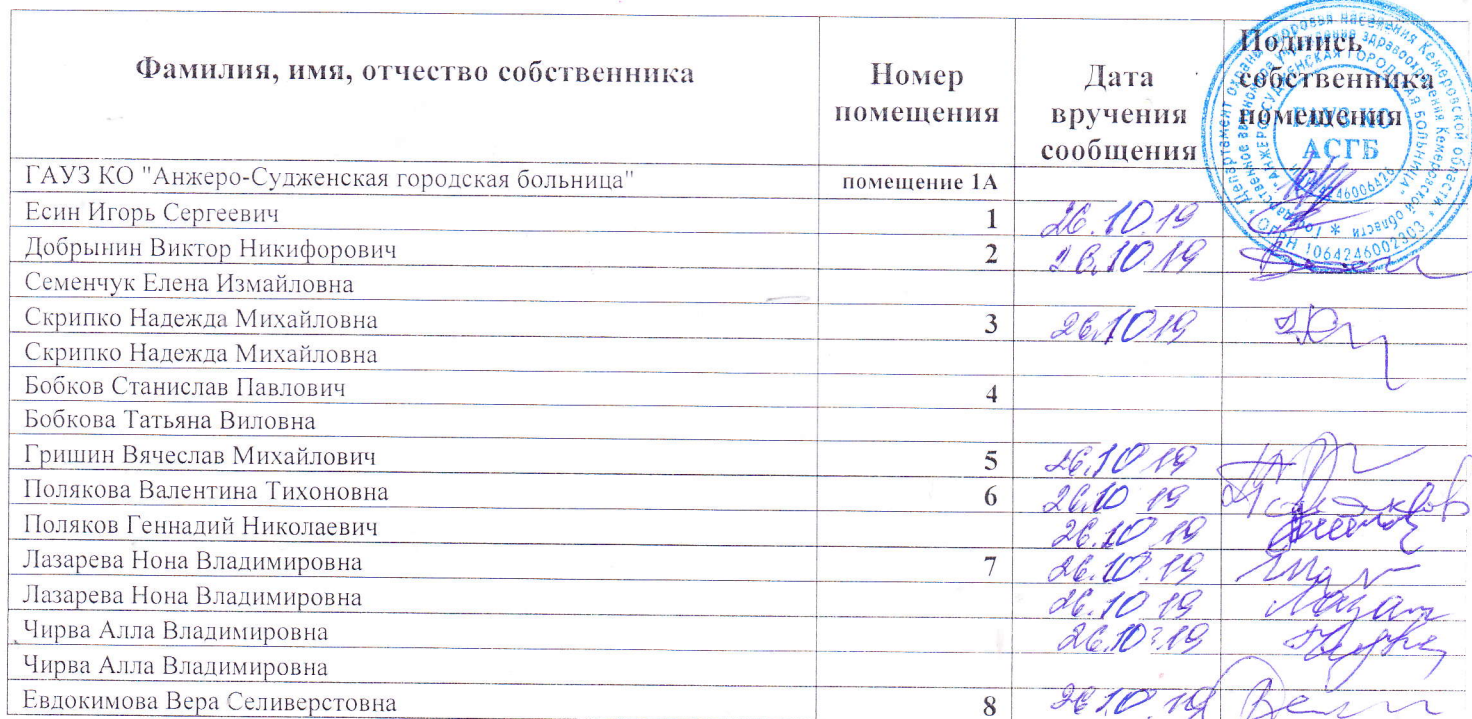 Фамилия, имя, отчество собственника Номер помещения Дата вручения сообщения Подпись собственника помещения
ГАУЗ КО "Анжеро-Судженская городская больница" помещение 1А
Есин Игорь Сергеевич 1 26.10.19
Добрынин Виктор Никифорович 2 26.10.19
Семенчук Елена Измайловна
Скрипко Надежда Михайловна 3 26.10.19
Скрипко Надежда Михайловна
Бобков Станислав Павлович 4
Бобкова Татьяна Виловна
Гришин Вячеслав Михайлович 5 26.10.19
Полякова Валентина Тихоновна 6 26.10.19
Поляков Геннадий Николаевич 26.10.19
Лазарева Нона Владимировна 7 26.10.19
Лазарева Нона Владимировна 26.10.19
Чирва Алла Владимировна 26.10.19
Чирва Алла Владимировна
Евдокимова Вера Селиверстовна 8 26.10.19
ГАУЗ КО
АСГБ
АНЖЕРО-СУДЖЕНСКАЯ ГОРОДСКАЯ БОЛЬНИЦА
ОГРН 1064246002303